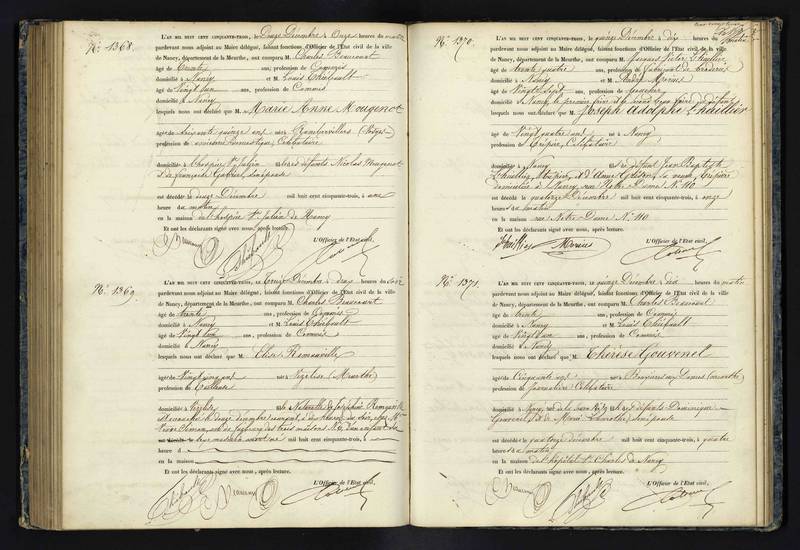 N° 1368.
L'AN MIL HUIT CENT CINQUANTE-TROIS, le Douze Décembre à Onze heures du matin
pardevant nous adjoint au Maire délégué, faisant fonctions d'Officier de l'Etat civil de la ville
de Nancy, département de la Meurthe, ont comparu M. Charles Beaucourt
âgé de trente ans, profession de Commis
domicilié à Nancy et M. Louis Thiébault
âgé de vingt un ans, profession de Commis
domicilié à Nancy
lesquels nous ont déclaré que M. Marie Anne Mougenot
âgée de soixante quinze ans née à Rambervillers (Vosges)
profession de domestique, Célibataire
domiciliée à l'hospice St Julien défunts Nicolas Mougenot
& de françoise
est décédée le douze Décembre mil huit cent cinquante-trois, à une
heure du matin
en la maison de l'hospice St Julien de Nancy
Et ont les déclarants signé avec nous, après lecture.
L'Officier de l'Etat civil,
N° 1369.
L'AN MIL HUIT CENT CINQUANTE-TROIS, le Treize Décembre à deux heures du soir
pardevant nous adjoint au Maire délégué, faisant fonctions d'Officier de l'Etat civil de la ville
de Nancy, département de la Meurthe, ont comparu M. Charles Beaucourt
âgé de trente ans, profession de Commis
domicilié à Nancy et M. Louis Thiébault
âgé de vingt un ans, profession de Commis
domicilié à Nancy
lesquels nous ont déclaré que M. Elise
âgée de vingt ans née à Vézelise (Meurthe)
profession de
domiciliée à Vézelise naturelle de Joséphine
est accouchée le douze décembre
du faubourg des trois maisons N° d'un enfant
sexe masculin mil huit cent cinquante-trois, à
heure d
en la maison
Et ont les déclarants signé avec nous, après lecture.
L'Officier de l'Etat civil,
N° 1370.
L'AN MIL HUIT CENT CINQUANTE-TROIS, le quinze Décembre à dix heures du matin
pardevant nous adjoint au Maire délégué, faisant fonctions d'Officier de l'Etat civil de la ville
de Nancy, département de la Meurthe, ont comparu M. Victor Lhuillier
âgé de trente quatre ans, profession de fabricant de broderies
domicilié à Nancy et M. André Mercier
âgé de vingt sept ans, profession de
domicilié à Nancy, le premier frère
lesquels nous ont déclaré que M. Joseph Adolphe Lhuillier
âgé de vingt quatre ans né à Nancy
profession de Crépier, Célibataire
domicilié à Nancy fils de défunt Jean Baptiste
Lhuillier, et d'Anne sa veuve, Crépière
domiciliée à Nancy rue Notre Dame N° 110
est décédé le quatorze Décembre mil huit cent cinquante-trois, à onze
heures du matin
en la maison rue Notre-Dame N° 110
Et ont les déclarants signé avec nous, après lecture.
L'Officier de l'Etat civil,
Lhuillier Mercier
N° 1371.
L'AN MIL HUIT CENT CINQUANTE-TROIS, le quinze Décembre à dix heures du matin
pardevant nous adjoint au Maire délégué, faisant fonctions d'Officier de l'Etat civil de la ville
de Nancy, département de la Meurthe, ont comparu M. Charles Beaucourt
âgé de trente ans, profession de Commis
domicilié à Nancy et M. Louis Thiébault
âgé de vingt un ans, profession de Commis
domicilié à Nancy
lesquels nous ont déclaré que M. Thérèse Gouvenel
âgée de Cinquante ans née à Rosières aux Salines (Meurthe)
profession de Journalière Célibataire
domiciliée à Nancy, rue défunts Dominique
Gouvenel & de Marie
est décédée le quatorze décembre mil huit cent cinquante-trois, à quatre
heures du matin
en la maison de l'hôpital St Charles de Nancy
Et ont les déclarants signé avec nous, après lecture.
L'Officier de l'Etat civil,